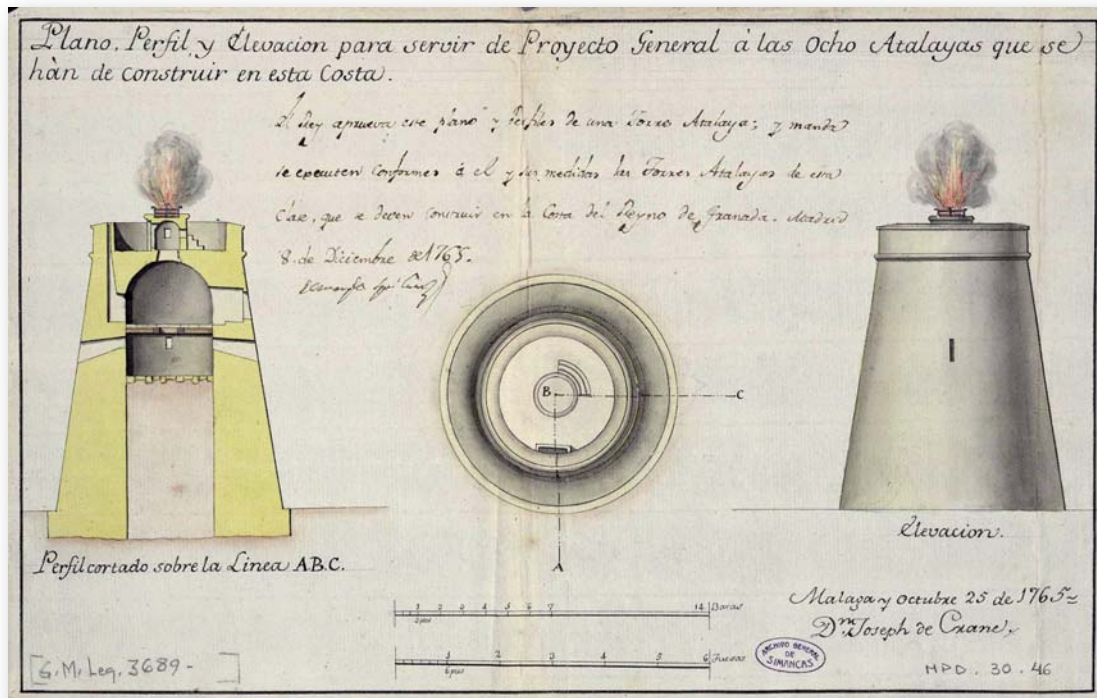 Plano, Perfil, y Elevacion para servir de Proyecto General à las Ocho Atalayas que se
hàn de construir en esta Costa.
El Rey aprueva este plano y Perfiles de una Torre Atalaya; y manda
se executen conformes á el y sus medidas las Torres Atalayas de esta
Clase, que se deven construir en la Costa del Reyno de Granada. Madrid
8. de Diciembre de 1765.
B
C
A
Elevacion.
Perfil cortado sobre la Linea A.B.C.
1 2 3 4 5 6 7 14 Baras
3 pies
1 2 3 4 5 6 Tuesas
6 pies
Malaga y Octubre 25 de 1765=
Dn. Joseph de Crane,
ARCHIVO GENERAL
DE
SIMANCAS
G.M. Leg. 3689-
MPD. 30. 46